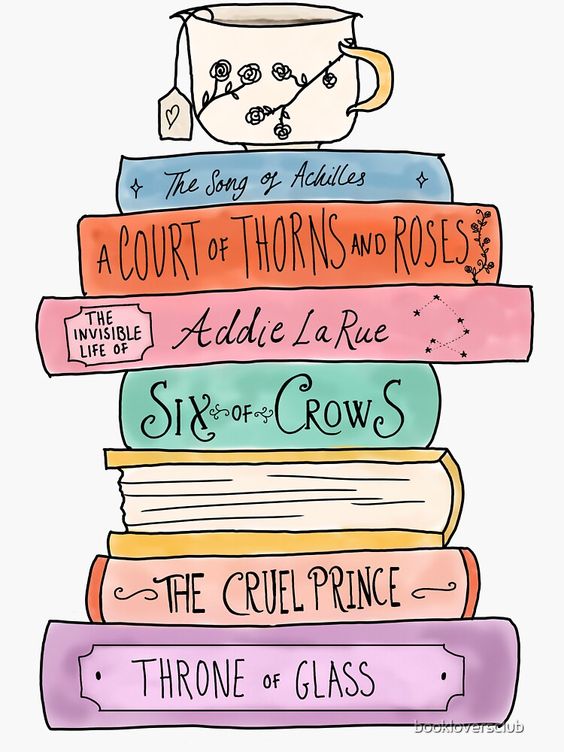 The Song of Achilles
A COURT OF THORNS AND ROSES
THE
INVISIBLE
LIFE OF
Addie LaRue
SIX OF CROWS
THE CRUEL PRINCE
THRONE OF GLASS
bookloversclub